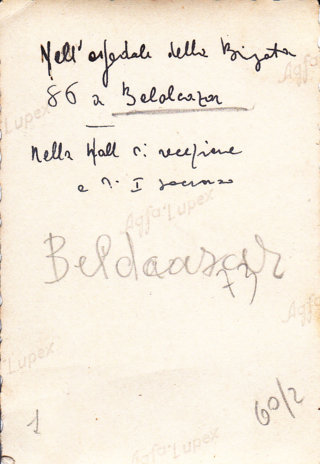 Nell'ospedale della Brigata
86 a Beldeazar
Nella Hall di recezione
e di I soccorso
Beldaasar
1
60/2
Agfa-Lupex
Agfa-Lupex
Agfa-Lupex
Lupex
Lupex